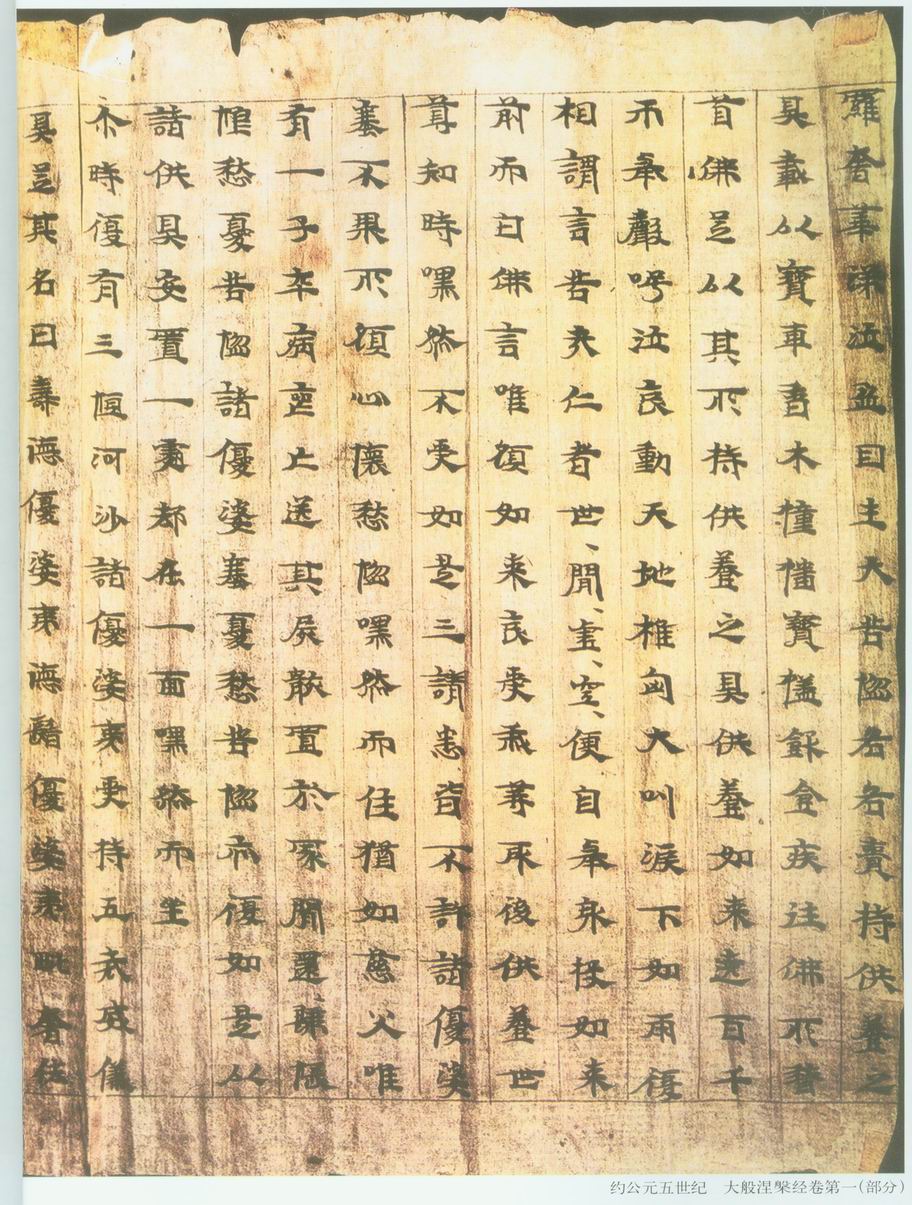 羅奢華涕泣盈目生大苦惱各各賷持供養之
具載以寶車香木幢幡寶蓋飲食疾往佛所稽
首佛足以其所持供養之具供養如來遶百千
帀舉聲号泣哀動天地椎匈大叫淚下如雨復
相謂言苦㢤仁者世閒虛空世閒虛空便自舉身投如來
前而白佛言唯願如來哀受我等冣後供養世
尊知時嘿然不受如是三請悉皆不許諸優婆
塞不果所願心懷愁惱嘿然而住猶如慈父唯
有一子卒病喪亡送其屍骸置於冢閒還歸悵
怏愁憂苦惱諸優婆塞憂愁苦惱亦復如是以
諸供具安置一處却在一面嘿然而坐
尒時復有三恒河沙諸優婆夷受持五戒威儀
具足其名曰壽德優婆夷德鬘優婆夷毗舍佉
约公元五世纪 大般涅槃经卷第一(部分)